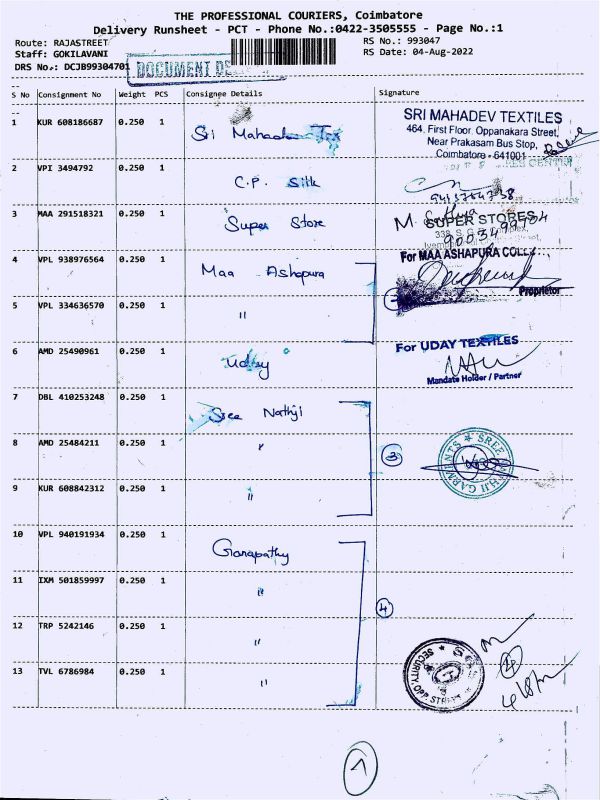 THE PROFESSIONAL COURIERS, Coimbatore
Delivery Runsheet - PCT - Phone No.:0422-3505555 - Page No.:1
Route: RAJASTREET
RS No.: 993047
Staff: GOKILAVANI
RS Date: 04-Aug-2022
DRS No.: DCJB99304701
DOCUMENT
S No Consignment No Weight PCS Consignee Details Signature
1 KUR 608186687 0.250 1 Sri
SRI MAHADEV TEXTILES
464, First Floor, Oppanakara Street,
Near Prakasam Bus Stop,
Coimbatore - 641001
2 VPI 3494792 0.250 1 C.P. Silk
3 MAA 291518321 0.250 1 Super Store
M. Sathya
SUPER STORES
4 VPL 938976564 0.250 1 Maa Ashapura
For MAA ASHAPURA
Proprietor
5 VPL 334636570 0.250 1 "
6 AMD 25490961 0.250 1 Uday
For UDAY TEXTILES
Mandate Holder / Partner
7 DBL 410253248 0.250 1 Sree Nathji
8 AMD 25484211 0.250 1 "
3
SREE NATHJI GARMENTS
9 KUR 608842312 0.250 1 "
10 VPL 940191934 0.250 1 Ganapathy
11 IXM 501859997 0.250 1 "
4
12 TRP 5242146 0.250 1 "
13 TVL 6786984 0.250 1 "
SECURITY, OPP. STREET
4
4/8/
1